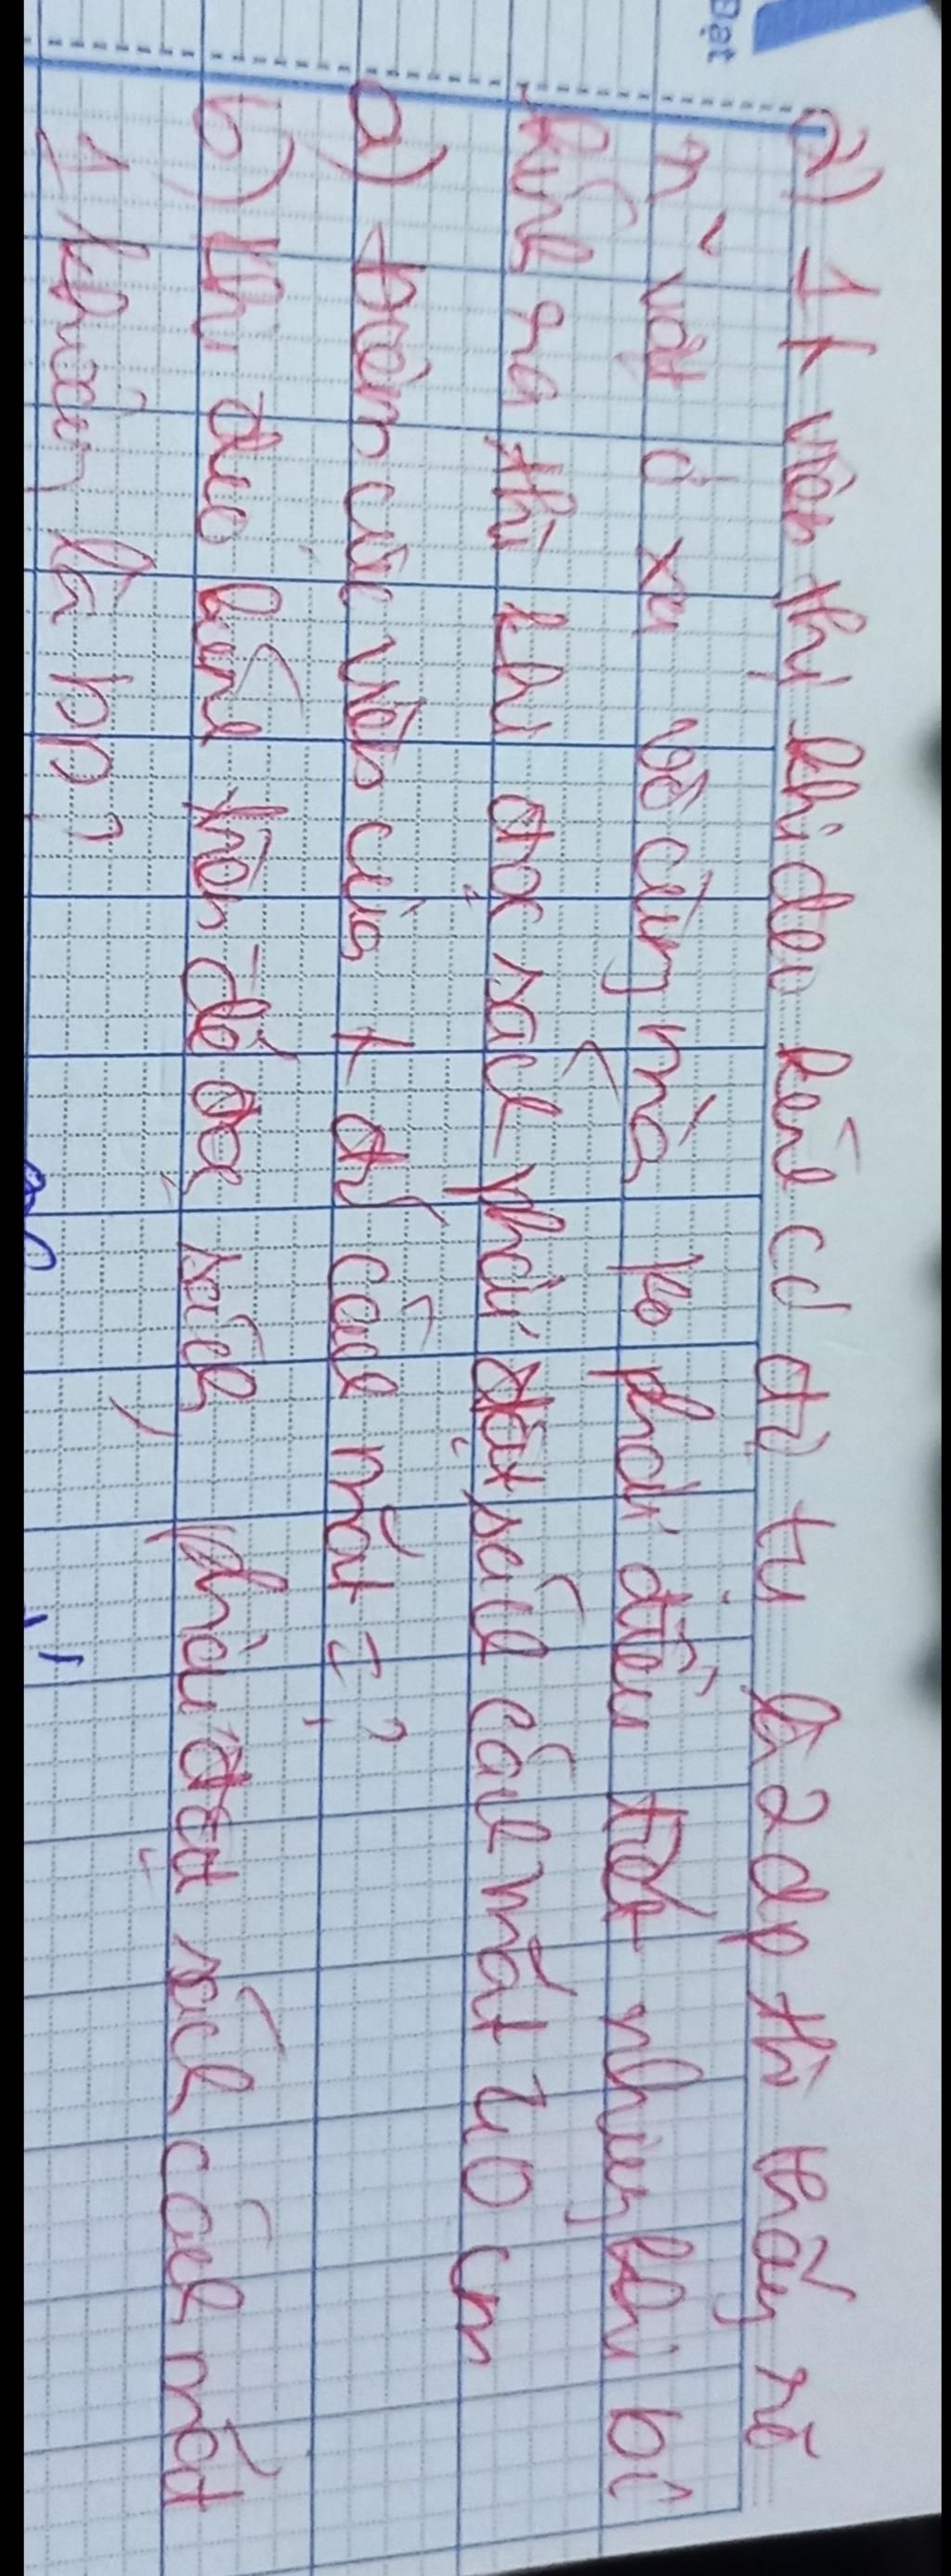 Đạt
2) 1 t viễn thị khi đeo kính có độ tụ là 2dp thì thấy rõ
n vật ở xa vô cùng mà ko phải điều tiết nhưng khi bỏ
kính ra thì khi đọc sách phải đặt sách cách mắt 40 cm
a) Điểm cực viễn của t đó cách mắt = ?
b) Khi đeo kính trên để đọc sách, phải đặt sách cách mắt
1 khoảng là bn?